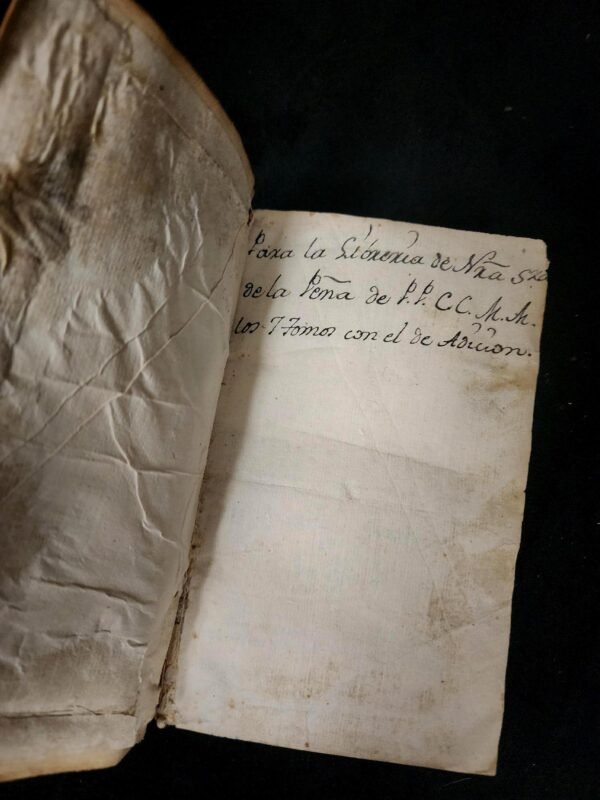 Para la Libreria de Nrã Srã
de la Peña de P.P. C C. M. M.
los 7 Tomos con el de Adicion.